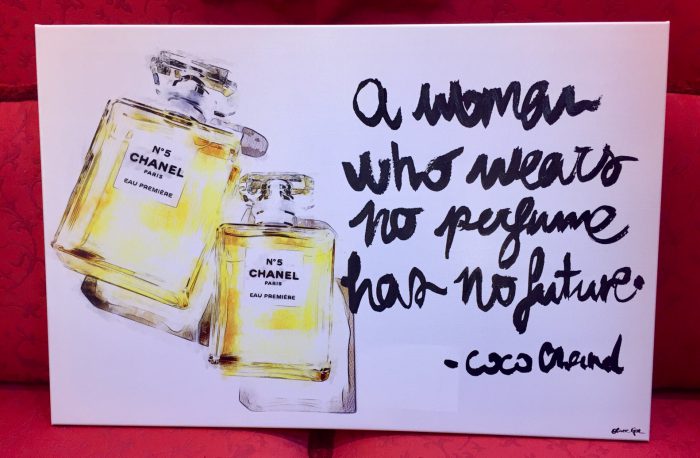 N°5
CHANEL
PARIS
EAU PREMIÈRE
N°5
CHANEL
PARIS
EAU PREMIÈRE
a woman
who wears
no perfume
has no future.
- COCO Chanel